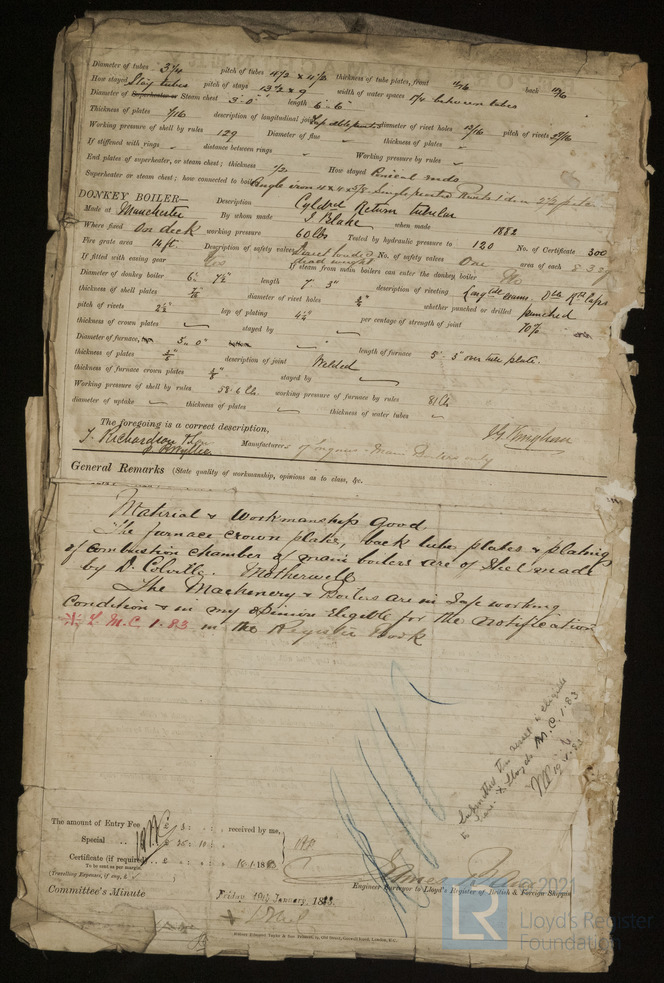 Diameter of tubes 3 1/4 pitch of tubes 4 1/2 x 4 1/2 thickness of tube plates, front 11/16 back 11/16
How stayed Stay tubes pitch of stays 13 1/2 x 9 width of water spaces 1 1/4 between tubes
Diameter of Superheater or Steam chest 3'-0" length 6'-6"
Thickness of plates 7/16 description of longitudinal joint Lap diameter of rivet holes 13/16 pitch of rivets
Working pressure of shell by rules 129 Diameter of flue thickness of plates
If stiffened with rings distance between rings Working pressure by rules
End plates of superheater, or steam chest; thickness 1/2 How stayed Conical ends
Superheater or steam chest; how connected to boiler Angle iron
DONKEY BOILER— Description Cyldrcl Return tubular
Made at Manchester By whom made J. Blake when made 1882
Where fixed On deck working pressure 60 lbs Tested by hydraulic pressure to 120 No. of Certificate 300
Fire grate area 14 ft. Description of safety valves Direct loaded dead weight No. of safety valves One area of each
If fitted with easing gear Yes If steam from main boilers can enter the donkey boiler No
Diameter of donkey boiler 6' 7 1/2" length 7' 3" description of riveting
thickness of shell plates diameter of rivet holes whether punched or drilled punched
pitch of rivets 2 1/2" lap of plating per centage of strength of joint 70%
thickness of crown plates stayed by
Diameter of furnace, 3' 0" length of furnace 5' 3" over tube plate.
thickness of plates description of joint Welded
thickness of furnace crown plates stayed by
Working pressure of shell by rules 58.6 lb. working pressure of furnace by rules 81 lb
diameter of uptake thickness of plates thickness of water tubes
The foregoing is a correct description,
T. Richardson Manufacturers of Engines & Main Boilers only
General Remarks (State quality of workmanship, opinions as to class, &c.
Material & Workmanship Good
The furnace crown plates, back tube plates & plating
of combustion chamber of main boilers are of Steel made
by D. Colville. Motherwell
The Machinery & Boilers are in safe working
condition & in my opinion Eligible for the notification
L.M.C 1.83 in the Register Book
Submitted this vessel is eligible
to have Lloyds M.C. 1.83
19.1.83
The amount of Entry Fee £ 3: : : received by me,
Special £
Certificate (if required) £ : : 16.1.1883
To be sent as per margin.
(Travelling Expenses, if any, £
James
Engineer Surveyor to Lloyd's Register of British & Foreign Shipping
Committee's Minute Friday 19th January 1883
+ L.M.C
© 2021
LR Lloyd's Register
Foundation